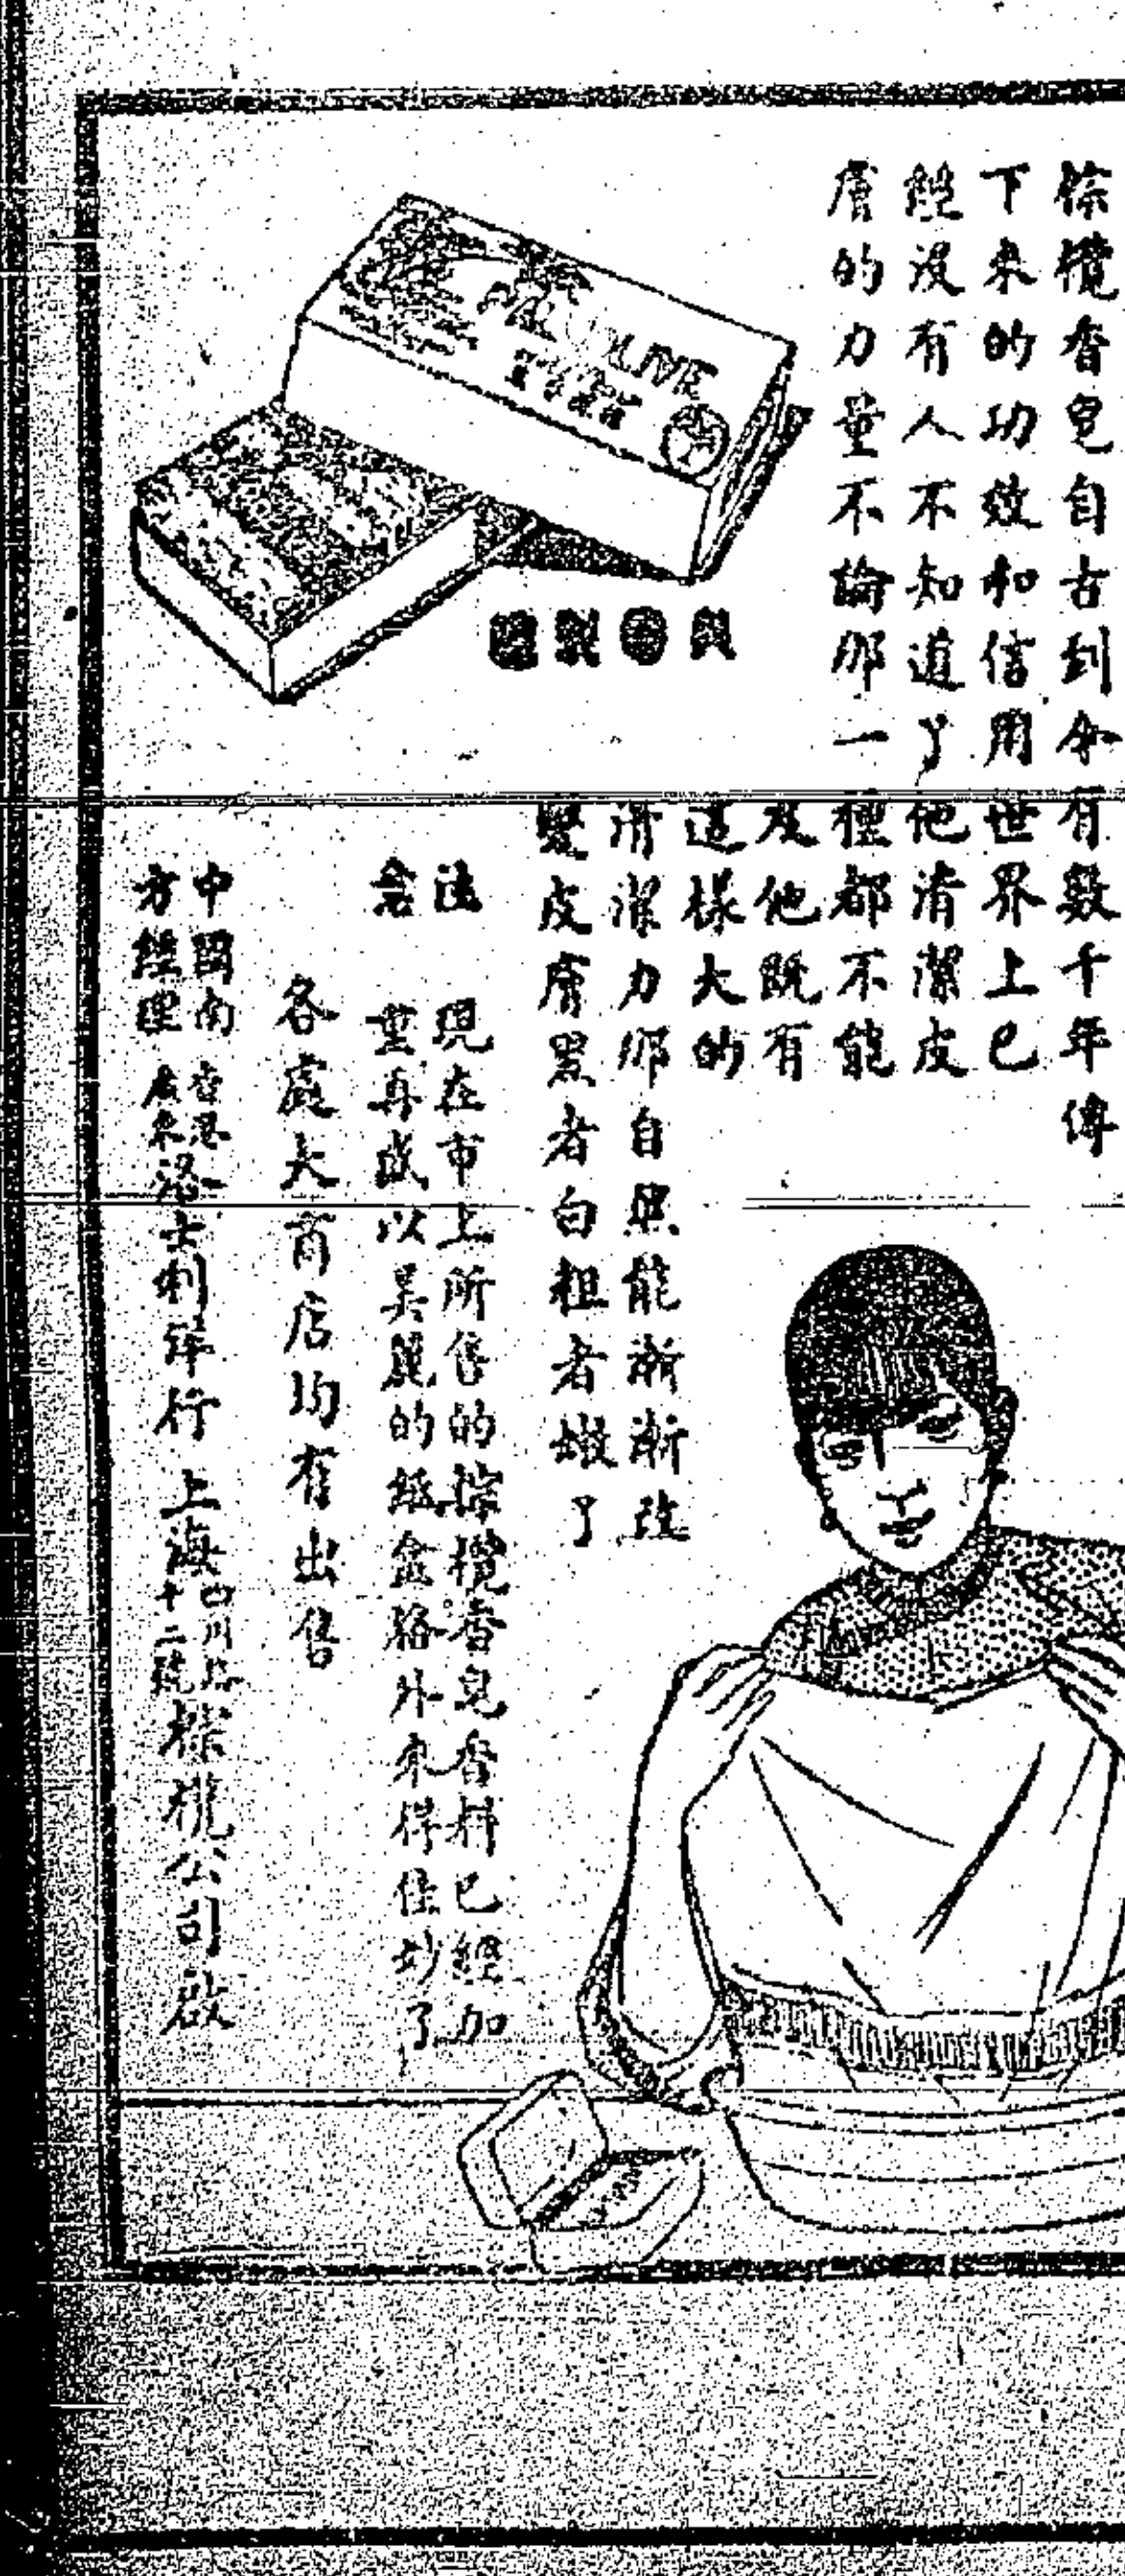 棕欖香皂自古到今有數千年傳
下來的功效和信用世界上已
經沒有人不知道了他清潔皮
膚的力量不論那一種都不能
及他既有
這樣大的
清潔力那自然能漸漸改
變皮膚黑者白粗者嫩了
注意
現在市上所售的棕欖香皂香料已經加
重再盛以美麗的紙盒格外來得佳妙了
各處大商店均有出售
中國南方經理
香港廣東
洋行
上海四川路十二號棕欖公司啟
PALMOLIVE